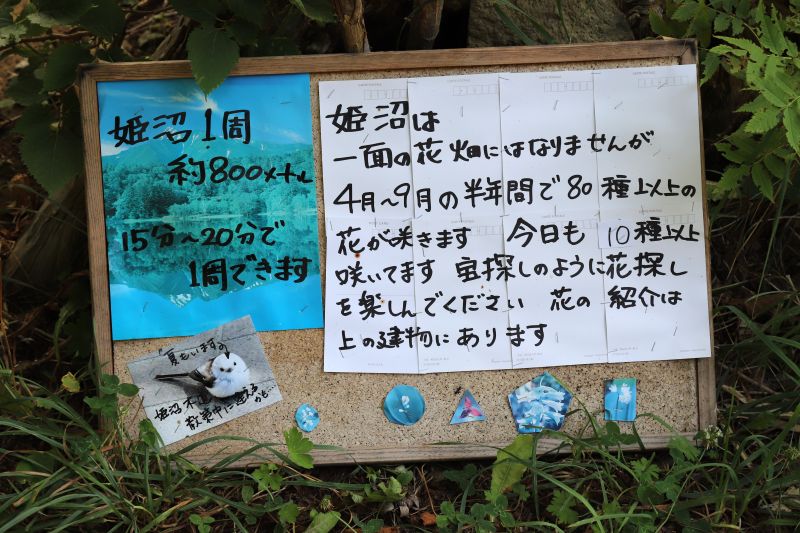 姫沼1周
約800メートル
15分～20分で
1周できます
姫沼は
一面の花畑にはなりませんが
4月～9月の半年間で80種以上の
花が咲きます 今日も10種以上
咲いてます 宝探しのように花探し
を楽しんでください 花の紹介は
上の建物にあります
夏もいますの
姫沼木道
散策中に逢えるかも…